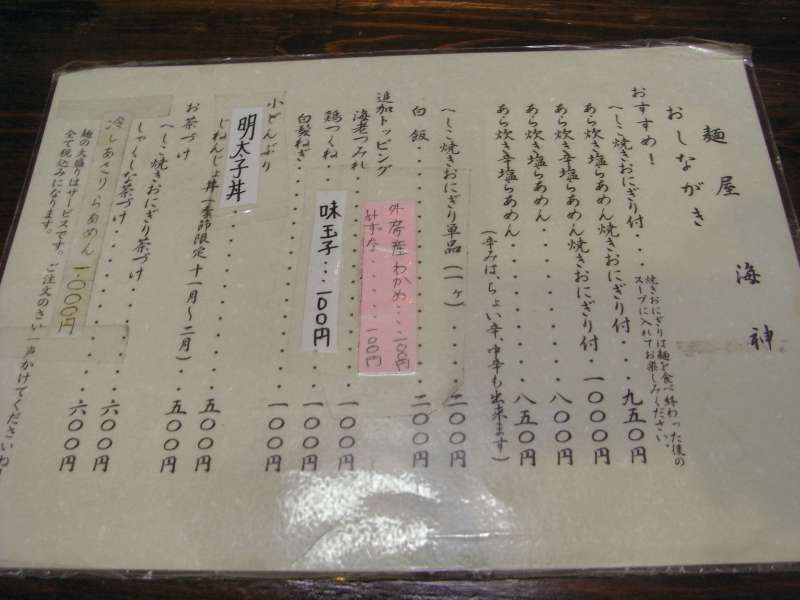 麺屋 海神
おしながき
おすすめ！
焼きおにぎりは麺を食べ終わった後の
スープに入れてお楽しみください。
へしこ焼きおにぎり付
あら炊き塩らぁめんへしこ焼きおにぎり付・・九五〇円
あら炊き辛塩らぁめんへしこ焼きおにぎり付 一〇〇〇円
あら炊き塩らぁめん・・・・・・・八〇〇円
あら炊き辛塩らぁめん・・・・・・八五〇円
(辛みは、ちょい辛、中辛も出来ます)
へしこ焼きおにぎり単品(一ヶ)・・・・二〇〇円
白飯・・・・・・・・・・二〇〇円
外房産わかめ・・・一〇〇円
みずな・・・・・一〇〇円
追加トッピング
海老つみれ・・・・・・・一〇〇円
味玉子・・・一〇〇円
鶏つくね・・・・・・・一〇〇円
白髪ねぎ・・・・・・・一〇〇円
小どんぶり
明太子丼
じねんじょ丼(季節限定 十一月～二月)・・五〇〇円
お茶づけ
へしこ焼きおにぎり茶づけ・・・・・五〇〇円
しゃくしな茶づけ・・・・・・・六〇〇円
冷しあさりらぁめん 1.000円
六〇〇円
麺の大盛りはサービスです。ご注文のさい一声かけてくださいね
全て税込みになります。